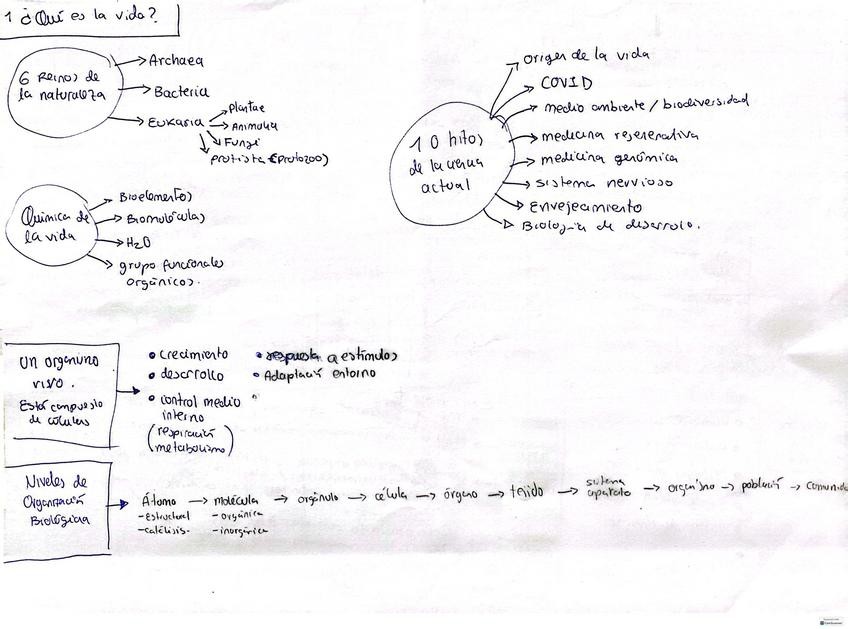 1 ¿Qué es la vida?
6 Reinos de
la naturaleza
Archaea
Bacteria
Eukaria
Plantae
Animalia
Fungi
protista (protozoo)
Química de
la vida
Bioelementos
Biomoléculas
H2O
grupo funcionales
orgánicos.
10 hitos
de la ciencia
actual
origen de la vida
COVID
medio ambiente / biodiversidad
medicina regenerativa
medicina genómica
sistema nervioso
Envejecimiento
Biología de desarrollo.
Un organismo
vivo.
Está compuesto
de células
• crecimiento
• desarrollo
• control medio
interno
(respiración
metabolismo)
• respuesta a estímulos
• Adaptación entorno
Niveles de
Organización
Biológica
Átomo → molécula → orgánulo → célula → órgano → tejido → sistema aparato → organismo → población → comunida
- estructural - orgánica
- catálisis - inorgánica